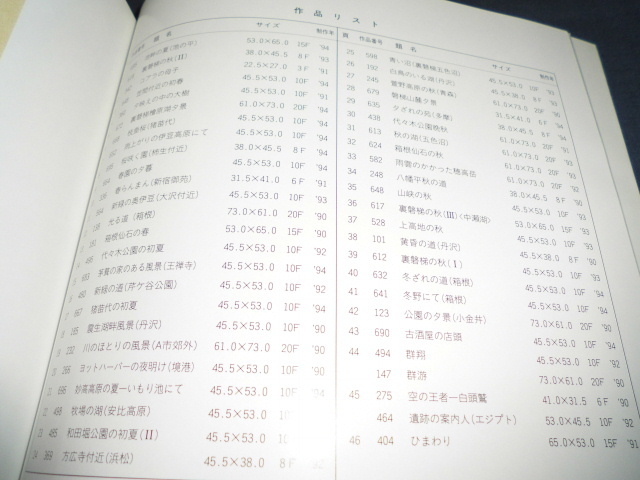 作品リスト
題名 サイズ 制作年
53.0×65.0 15F '94
裏磐梯の秋(II) 38.0×45.5 8F '93
コアラの母子 22.5×27.0 3F '91
初春 45.5×53.0 10F '91
大樹 45.5×53.0 10F '94
夕景 61.0×73.0 20F '94
(猪苗代) 45.5×53.0 10F '94
雨上がりの伊豆高原にて 45.5×53.0 10F '94
桜咲く園(柿生付近) 38.0×45.5 8F '94
春園の夕暮 45.5×53.0 10F '94
春らんまん(新宿御苑) 31.5×41.0 6F '91
新緑の奥伊豆(大沢付近) 45.5×53.0 10F '94
光る道(箱根) 73.0×61.0 20F '90
箱根仙石の春 53.0×65.0 15F '90
代々木公園の初夏 45.5×53.0 10F '92
芋賞の家のある風景(王禅寺) 45.5×53.0 10F '94
新緑の道(芹ケ谷公園) 45.5×53.0 10F '92
猪苗代の初夏 45.5×53.0 10F '94
震生湖畔風景(丹沢) 45.5×53.0 10F '90
232 川のほとりの風景(A市郊外) 61.0×73.0 20F '90
266 ヨットハーバーの夜明け(境港) 45.5×53.0 10F '90
696 妙高高原の夏―いもり池にて 45.5×53.0 10F '94
498 牧場の湖(安比高原) 45.5×53.0
485 和田堀公園の初夏(II) 45.5×53.0
369 方広寺付近(浜松) 45.5×38.0 8F
図 作品番号 題名 サイズ 制作年
25 598 青い沼(裏磐梯五色沼) 45.5×53.0 10F '93
26 192 白鳥のいる湖(丹沢) 45.5×38.0 8F
27 245 萱野高原の秋(青森) 61.0×73.0 20F
28 679 磐梯山麓夕景 31.5×41.0 6F
29 635 夕ざれの苑(多摩) 38.0×45.5 8F
30 438 代々木公園晩秋 45.5×53.0 10F
31 613 秋の湖(五色沼) 61.0×73.0 20F
32 624 箱根仙石の秋 45.5×53.0 10F
33 582 雨雲のかかった穂高岳 61.0×73.0 20F '92
34 248 八幡平秋の道 61.0×73.0 20F
35 648 山峡の秋 38.0×45.5 8F
36 617 裏磐梯の秋(III)(中瀬湖) 45.5×53.0 10F '93
37 528 上高地の秋 53.0×65.0 15F
38 101 黄昏の道(丹沢) 45.5×53.0 10F
39 612 裏磐梯の秋(I) 45.5×38.0 8F
40 632 冬ざれの道(箱根) 45.5×53.0 10F
41 641 冬野にて(箱根) 45.5×53.0 10F '94
42 123 公園の夕景(小金井) 45.5×53.0 10F '94
43 690 古酒屋の店頭 73.0×61.0 20F
44 494 群翔 45.5×53.0 10F '92
147 群游 73.0×61.0 20F '90
45 275 空の王者―白頭鷲 41.0×31.5 6F '90
464 遺跡の案内人(エジプト) 53.0×45.5 10F '92
46 404 ひまわり 65.0×53.0 15F '91